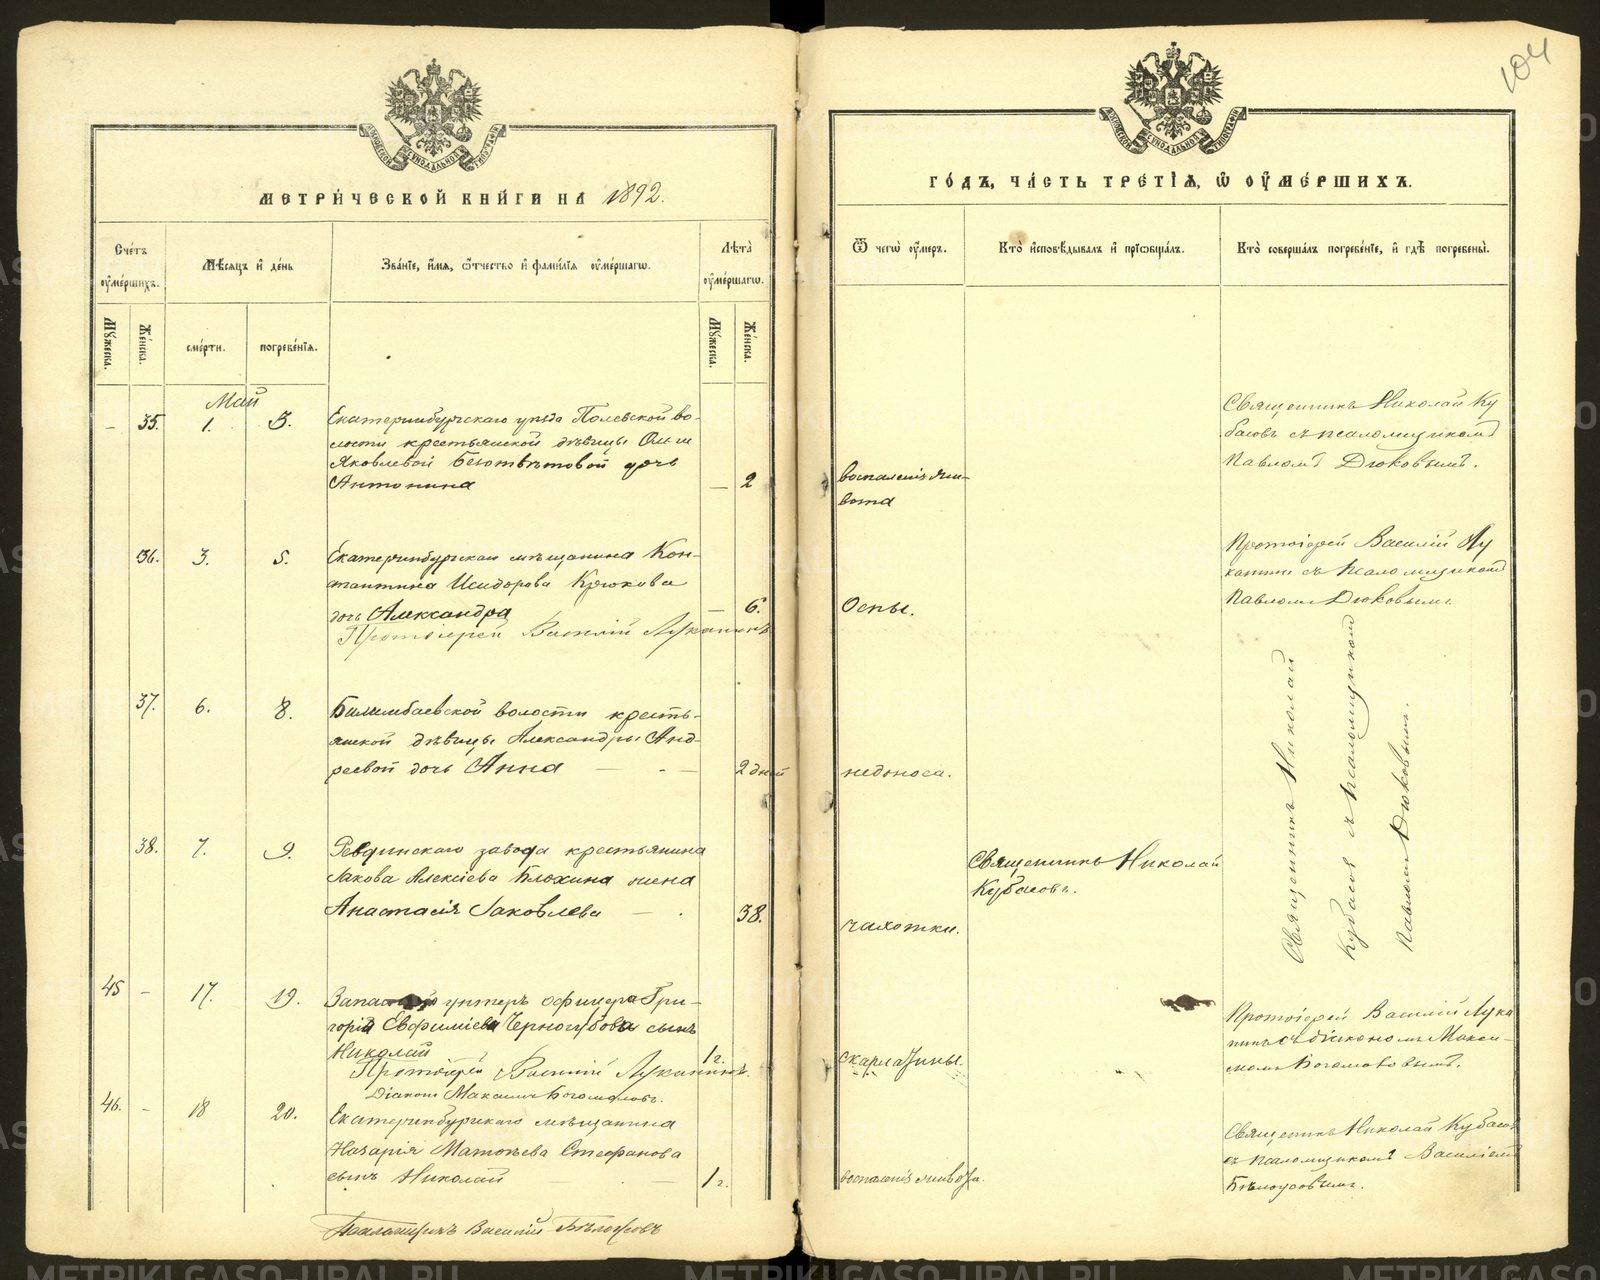 104
МЕТРИ́ЧЕСКОЙ КНИ́ГИ НА 1892.
ГО́ДЪ, ЧА́СТЬ ТРЕ́ТІѦ, Ѡ ОУ҆МЕ́РШИХЪ.
Сче́тъ оу҆ме́ршихъ.
Мѣ́сѧцъ и҆ де́нь
Зва́нїе, и҆́мѧ, ѻ҆́тчество и҆ фами́лїѧ оу҆ме́ршагѡ.
Лѣ́та оу҆ме́ршагѡ.
Ѿ чегѡ̀ оу҆́меръ.
Кто̀ и҆сповѣ́дывалъ и҆ прїѡбща́лъ.
Кто̀ соверша́лъ погребе́нїе, и҆ гдѣ̀ погребены̀.
Мꙋ́жеска.
Же́нска.
сме́рти.
погребе́нїѧ.
Мꙋ́жеска.
Же́нска.
Май
– 35. 1. 3. Екатеринбургскаго уѣзда Полевской во-
лости крестьянской дѣвицы Ольги
Яковлевой Безотвѣтовой дочь
Антонина — 2
воспаленія жи-
вота
Священникъ Николай Ку
басовъ съ псаломщикомъ
Павломъ Дюковымъ.
36. 3. 5. Екатеринбургскаго мѣщанина Кон-
стантина Исидорова Крюкова
дочь Александра — 6.
Протоіерей Василій Луканинъ
Оспы.
Протоіерей Василій Лу
канинъ съ псаломщикомъ
Павломъ Дюковымъ.
37. 6. 8. Билимбаевской волости кресть-
янской дѣвицы Александры Анд-
реевой дочь Анна — 2 дней
недоноса.
Священникъ Николай
Кубасовъ съ псаломщикомъ
Павломъ Дюковымъ.
38. 7. 9. Ревдинскаго завода крестьянина
Іакова Алексіева Блохина жена
Анастасія Іаковлева — 38.
чахотки.
Священникъ Николай
Кубасовъ.
45 – 17. 19. унтеръ офицера Гри-
горія Евфиміева Черногубова сынъ
Николай 1 г.
Протоіерей Василій Луканинъ.
Діаконъ Максимъ Богомоловъ.
скарлатины.
Протоіерей Василій Лука
нинъ съ діакономъ Макси-
момъ Богомоловымъ.
46. – 18 20. Екатеринбургскаго мѣщанина
Назарія Матѳеева Стефанова
сынъ Николай — 1 г.
воспаленія живота.
Священникъ Николай Кубасовъ
съ псаломщикомъ Василіемъ
Бѣлоусовымъ.
Псаломщикъ Василій Бѣлоусовъ
METRIKI.GASO-URAL.RU